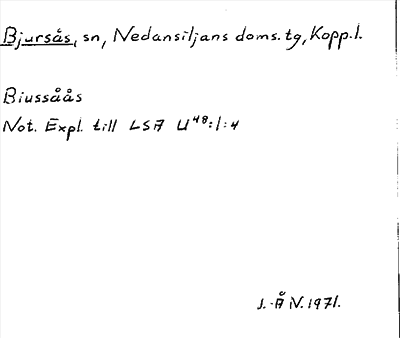 Bjursås, sn, Nedansiljans doms. tg, Kopp. l.
Biussåås
Not. Expl. till LSA U48:1:4
J.-Å N. 1971.